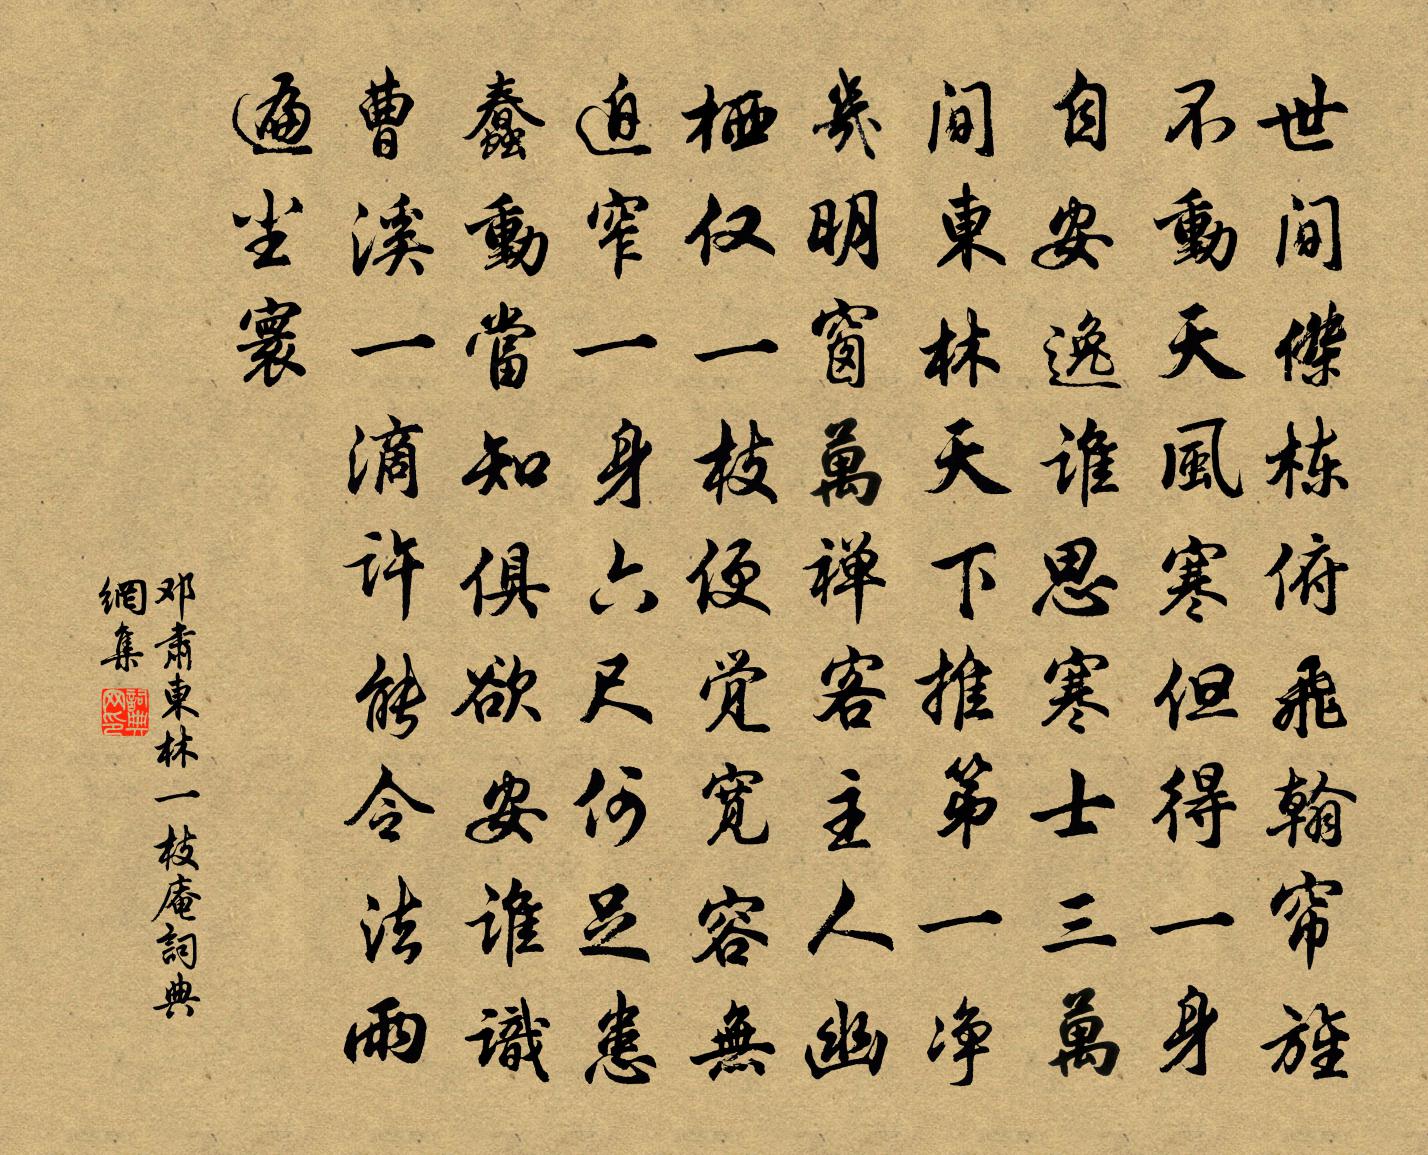 世間傑栋俯飛翰帘旌
不動天風寒但得一身
自安逸谁思寒士三萬
間東林天下推第一净
幾明窗萬禅客主人幽
栖仅一枝便觉宽容無
迫窄一身六尺何足患
蠢動當知俱欲安谁識
曹溪一滴许能令法雨
遍尘寰
邓肃東林一枝庵詞典
網集
詞典网印